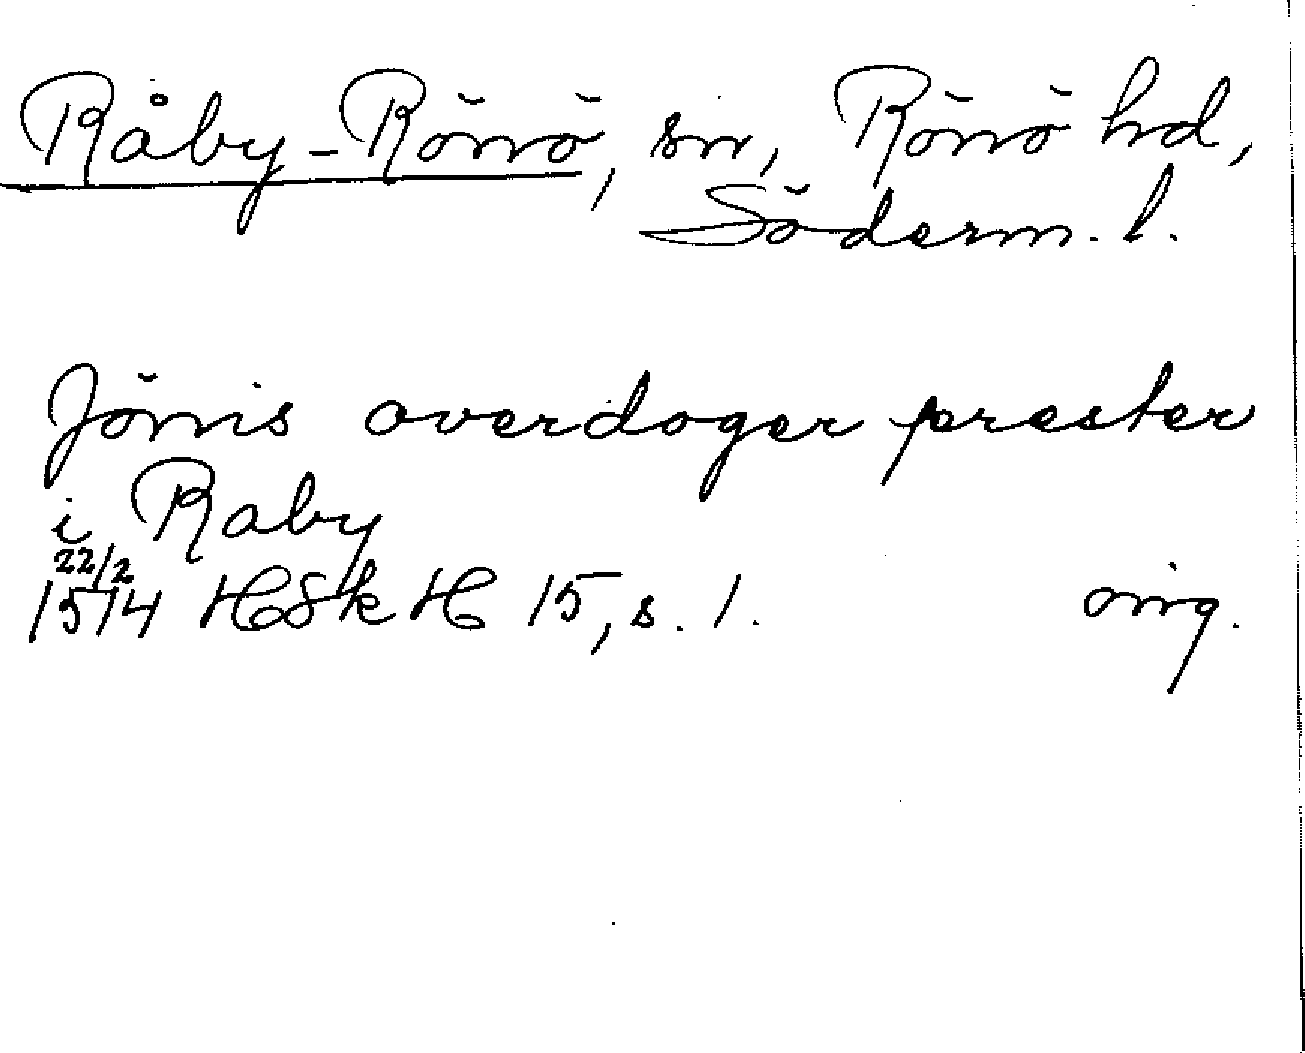 Råby-Rönö, sn, Rönö hd,
Söderm. l.
Jönis overdoger prester
i Raby
22/2
1514 HSkH 15, s. 1. orig.